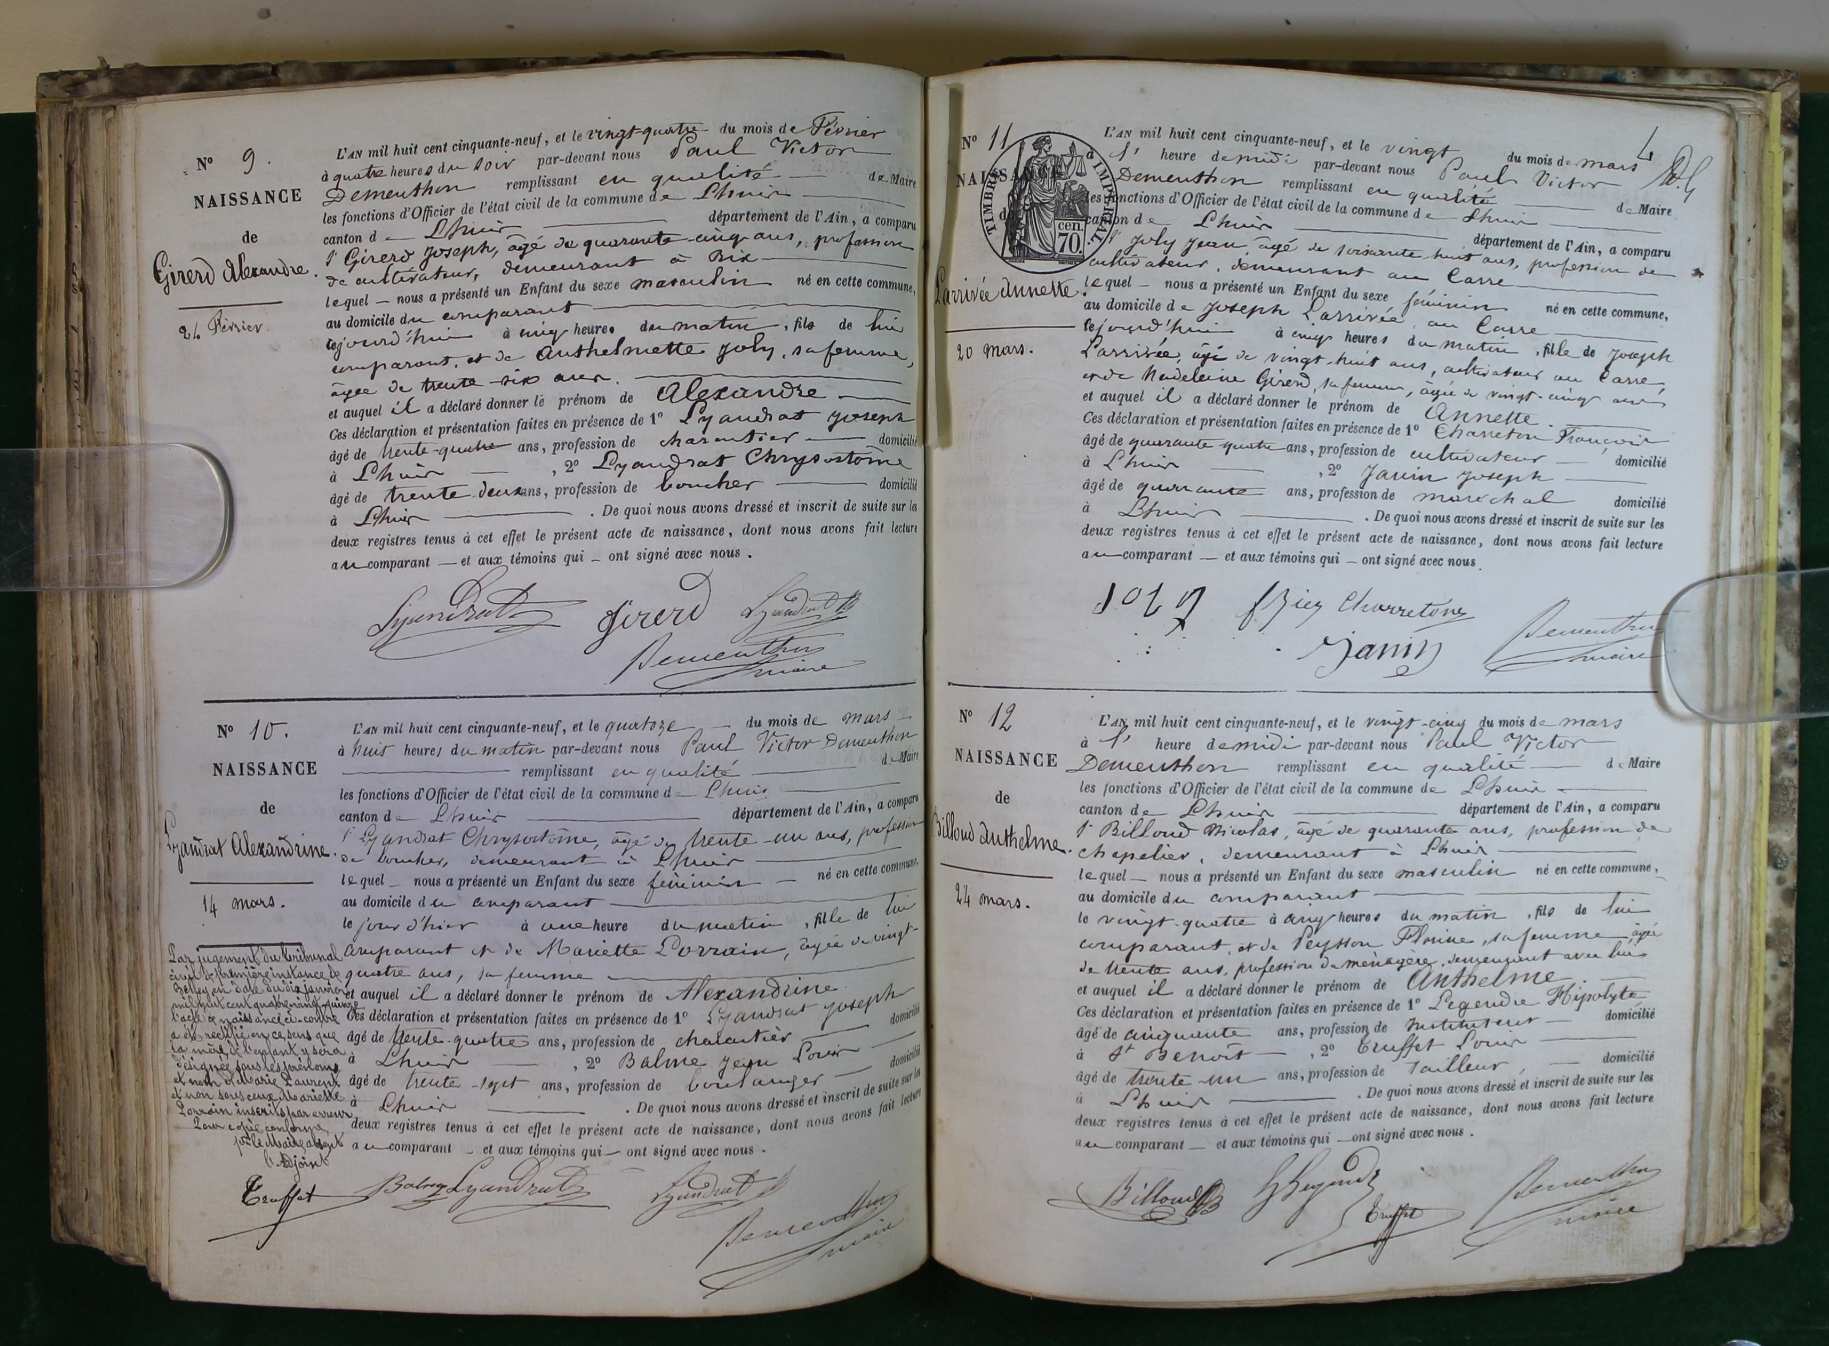 N° 9.
NAISSANCE
de
Girerd Alexandre.
24 Février
L'AN mil huit cent cinquante-neuf, et le vingt-quatre du mois de Février
à quatre heures du soir par-devant nous Paul Victor
Demeuthon remplissant en qualité de Maire
les fonctions d'Officier de l'état civil de la commune de Lhuis
canton de Lhuis département de l'Ain, a comparu
sr Girerd Joseph, âgé de quarante-cinq ans, profession
de cultivateur, demeurant à Rix
lequel nous a présenté un Enfant du sexe masculin né en cette commune,
au domicile du comparant
cejourd'hui à cinq heures du matin, fils de lui
comparant, et de Anthelmette Joly, sa femme,
âgée de trente-six ans.
et auquel il a déclaré donner le prénom de Alexandre
Ces déclaration et présentation faites en présence de 1° Lyandrat Joseph
âgé de trente-quatre ans, profession de charcutier domicilié
à Lhuis , 2° Lyandrat Chrysostôme
âgé de trente-deux ans, profession de boucher domicilié
à Lhuis . De quoi nous avons dressé et inscrit de suite sur les
deux registres tenus à cet effet le présent acte de naissance, dont nous avons fait lecture
au comparant et aux témoins qui ont signé avec nous.
Lyandrat Girerd Lyandrat
Demeuthon
maire
N° 10.
NAISSANCE
de
Lyandrat Alexandrine.
14 mars.
Par jugement du tribunal
civil de première instance de
Belley en date du dix janvier
mil huit cent quatre-vingt-
l'acte de naissance ci-contre
a été rectifié en ce sens que
la mère de l'enfant y sera
désignée sous les prénoms
et nom de Marie Laurent
et non sous ceux de Mariette
Lorrain inscrits par erreur
Pour copie conforme
pr le Maire absent
l'Adjoint
Truffet
L'AN mil huit cent cinquante-neuf, et le quatorze du mois de mars
à huit heures du matin par-devant nous Paul Victor Demeuthon
remplissant en qualité de Maire
les fonctions d'Officier de l'état civil de la commune de Lhuis
canton de Lhuis département de l'Ain, a comparu
sr Lyandrat Chrysostôme, âgé de trente-un ans, profession
de boucher, demeurant à Lhuis
lequel nous a présenté un Enfant du sexe féminin né en cette commune,
au domicile du comparant
le jour d'hier à une heure du matin, fille de lui
comparant et de Mariette Lorrain, âgée de vingt-
quatre ans, sa femme
et auquel il a déclaré donner le prénom de Alexandrine
Ces déclaration et présentation faites en présence de 1° Lyandrat Joseph
âgé de trente-quatre ans, profession de charcutier domicilié
à Lhuis , 2° Balme Jean Louis
âgé de trente-sept ans, profession de boulanger domicilié
à Lhuis . De quoi nous avons dressé et inscrit de suite sur les
deux registres tenus à cet effet le présent acte de naissance, dont nous avons fait lecture
au comparant et aux témoins qui ont signé avec nous.
Balme Lyandrat Lyandrat
Demeuthon
maire
4
N° 11
NAISSANCE
de
Larrivée Annette.
20 mars.
TIMBRE IMPÉRIAL
cen.
70.
L'AN mil huit cent cinquante-neuf, et le vingt du mois de mars
à 1' heure de midi par-devant nous Paul Victor
Demeuthon remplissant en qualité de Maire
les fonctions d'Officier de l'état civil de la commune de Lhuis
canton de Lhuis département de l'Ain, a comparu
sr Joly Jean âgé de soixante-huit ans, profession de
cultivateur, demeurant au Carre
lequel nous a présenté un Enfant du sexe féminin né en cette commune,
au domicile de Joseph Larrivée, au Carre
cejourd'hui à cinq heures du matin, fille de Joseph
Larrivée, âgé de vingt-huit ans, cultivateur au Carre,
et de Madeleine Girerd, sa femme, âgée de vingt-cinq ans
et auquel il a déclaré donner le prénom de Annette
Ces déclaration et présentation faites en présence de 1° Charreton François
âgé de quarante-quatre ans, profession de cultivateur domicilié
à Lhuis , 2° Janin Joseph
âgé de quarante ans, profession de maréchal domicilié
à Lhuis . De quoi nous avons dressé et inscrit de suite sur les
deux registres tenus à cet effet le présent acte de naissance, dont nous avons fait lecture
au comparant et aux témoins qui ont signé avec nous.
Charreton
Janin
Demeuthon
maire
N° 12
NAISSANCE
de
Billoud Anthelme.
24 mars.
L'AN mil huit cent cinquante-neuf, et le vingt-cinq du mois de mars
à 1' heure de midi par-devant nous Paul Victor
Demeuthon remplissant en qualité de Maire
les fonctions d'Officier de l'état civil de la commune de Lhuis
canton de Lhuis département de l'Ain, a comparu
sr Billoud Nicolas, âgé de quarante ans, profession de
chapelier, demeurant à Lhuis
lequel nous a présenté un Enfant du sexe masculin né en cette commune,
au domicile du comparant
le vingt-quatre à cinq heures du matin, fils de lui
comparant, et de Peysson Florine, sa femme, âgée
de trente ans, profession de ménagère, demeurant avec lui
et auquel il a déclaré donner le prénom de Anthelme
Ces déclaration et présentation faites en présence de 1° Legendre Hipolyte
âgé de cinquante ans, profession de instituteur domicilié
à St Benoît , 2° Truffet Louis
âgé de trente-un ans, profession de tailleur domicilié
à Lhuis . De quoi nous avons dressé et inscrit de suite sur les
deux registres tenus à cet effet le présent acte de naissance, dont nous avons fait lecture
au comparant et aux témoins qui ont signé avec nous.
Billoud Legendre
Truffet
Demeuthon
maire